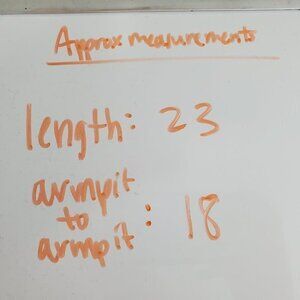 Approx measurements
length: 23
armpit
to
armpit : 18